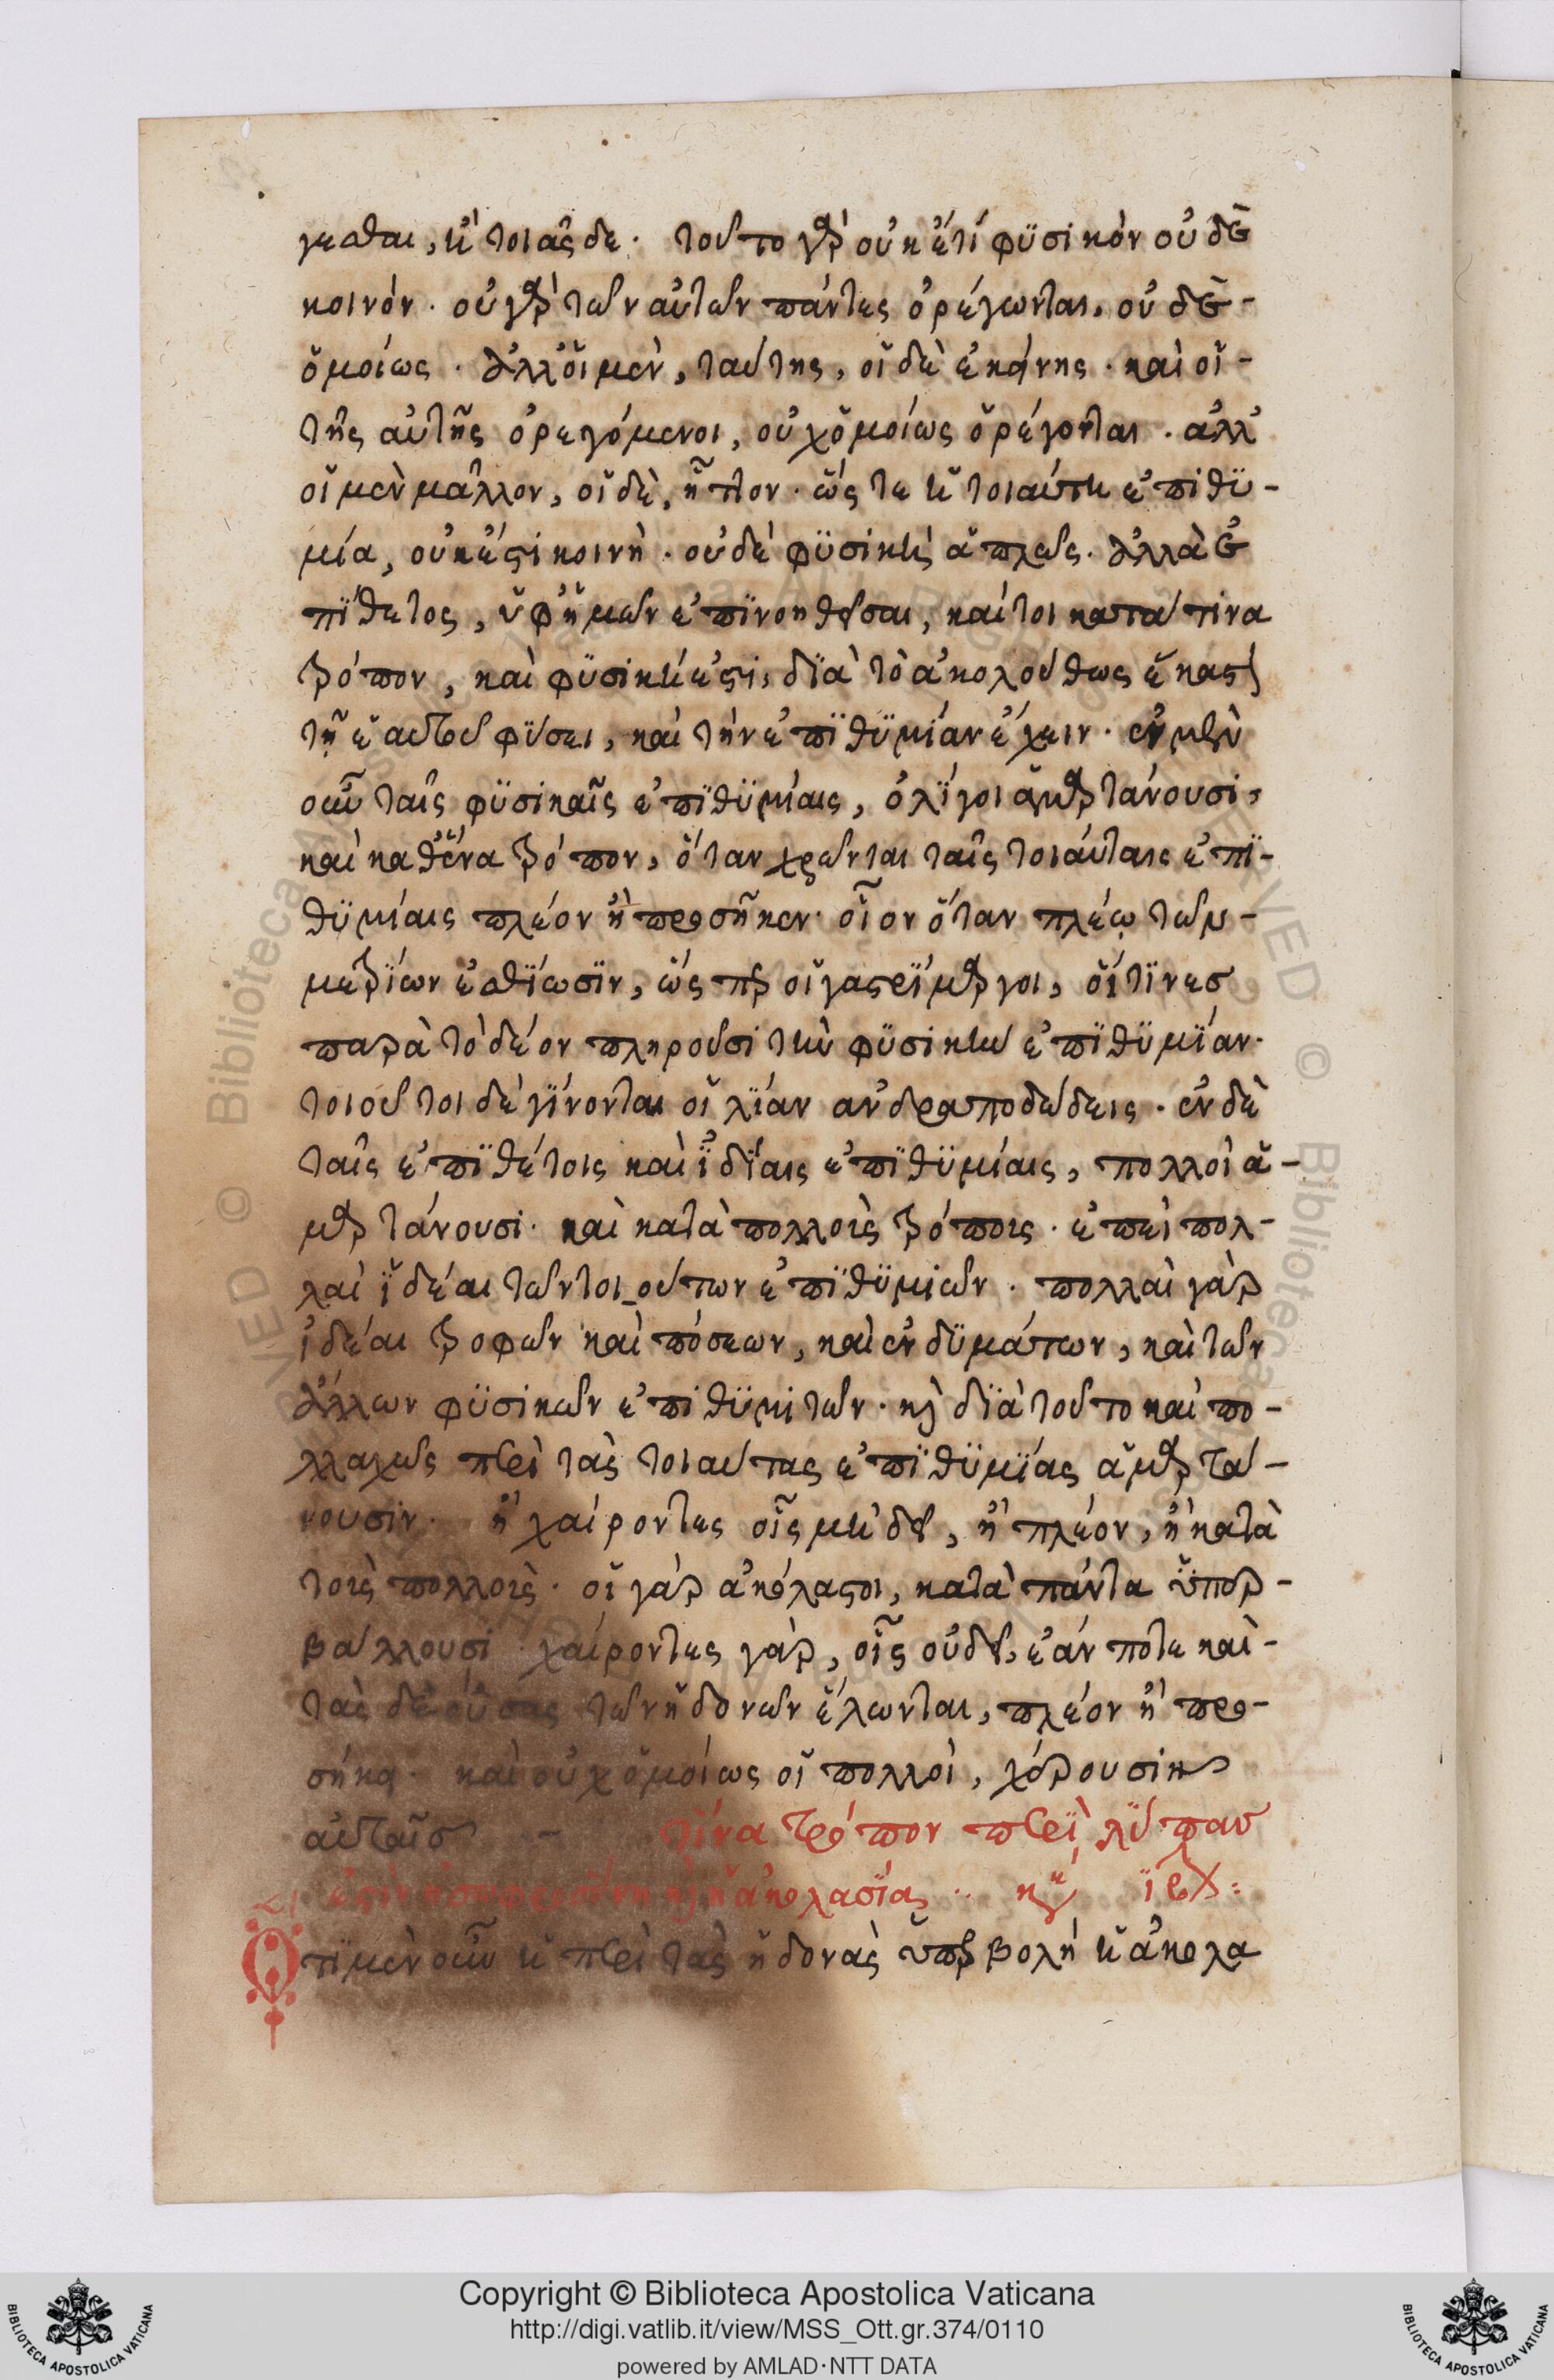 γεσθαι, ἢ τοιᾶς δε. τοῦτο γὰρ οὐκέτι φϋσικὸν οὐδὲ
κοινόν. οὐ γὰρ τῶν αὐτῶν πάντες ὀρέγωνται, οὐδὲ-
ὁμοίως. ἀλλ' οἱ μὲν, ταύτης, οἱ δὲ ἐκείνης. καὶ οἱ-
τῆς αὐτῆς ὀρεγόμενοι, οὐχ ὁμοίως ὀρέγονται. ἀλλ'
οἱ μὲν μᾶλλον, οἱ δὲ, ἧττον. ὥς τε ἡ τοιαύτη ἐπιθϋ-
μία, οὐκ ἔστι κοινὴ. οὐδὲ φϋσικὴ ἁπλῶς. ἀλλὰ ἐ
πΐθετος, ὑφ' ἡμῶν ἐπϊνοηθεῖσαι, καίτοι κατά τινα
τρόπον, καὶ φϋσική ἐστι, δϊὰ τὸ ἀκολούθως ἕκαστ
τῇ ἑαυτοῦ φύσει, καὶ τὴν ἐπϊθϋμίαν ἔχειν. ἐν μὲν
οὖν ταῖς φϋσικαῖς ἐπϊθϋμίαις, ὀλΐγοι ἁμαρτάνουσι,
καὶ καθ' ἕνα τρόπον, ὅταν χρῶνται ταῖς τοιαύταις ἐπϊ-
θϋμίαις πλέον ἢ προσῆκεν. οἷον ὅταν πλέω τῶν-
μετρΐων ἐσθΐωσϊν, ὥς περ οἱ γαστρΐμαργοι, οἵτϊνες
παρὰ τὸ δέον πληροῦσι τὴν φϋσικὴν ἐπϊθϋμΐαν.
τοιοῦτοι δὲ γΐνονται οἱ λΐαν ἀνδραποδώδεις. ἐν δὲ
ταῖς ἐπϊθέτοις καὶ ἰδΐαις ἐπϊθϋμίαις, πολλοὶ ἁ-
μαρτάνουσι. καὶ κατὰ πολλοὺς τρόπους. ἐπεὶ πολ-
λαὶ ἰδέαι τῶν τοιούτων ἐπϊθϋμιῶν. πολλαὶ γὰρ
ἰδέαι τροφῶν καὶ πόσεων, καὶ ἐνδϋμάτων, καὶ τῶν
ἄλλων φϋσικῶν ἐπιθϋμιτῶν. καὶ δϊὰ τοῦτο καὶ πο-
λλαχῶς περὶ τὰς τοιαύτας ἐπϊθϋμΐας ἁμαρτά-
νουσιν. ἢ χαίροντες οἷς μὴ δεῖ, ἢ πλέον, ἢ κατὰ
τοὺς πολλοὺς. οἱ γὰρ ἀκόλαστοι, κατὰ πάντα ὑπερ-
βάλλουσι. χαίροντες γὰρ, οἷς οὐ δεῖ, ἐάν ποτε καὶ-
τὰς δεούσας τῶν ἡδονῶν ἕλωνται, πλέον ἢ προ-
σήκει. καὶ οὐχ ὁμοίως οἱ πολλοὶ, χαίρουσιν
αὐταῖς - τίνα τρόπον περὶ λύπας
ἐστὶν ἡ σωφροσύνη καὶ ἡ ἀκολασΐας
Ὅτϊ μὲν οὖν ἡ περὶ τὰς ἡδονὰς ὑπερβολὴ ἡ ἀκολα
Copyright © Biblioteca Apostolica Vaticana
http://digi.vatlib.it/view/MSS_Ott.gr.374/0110
powered by AMLAD·NTT DATA